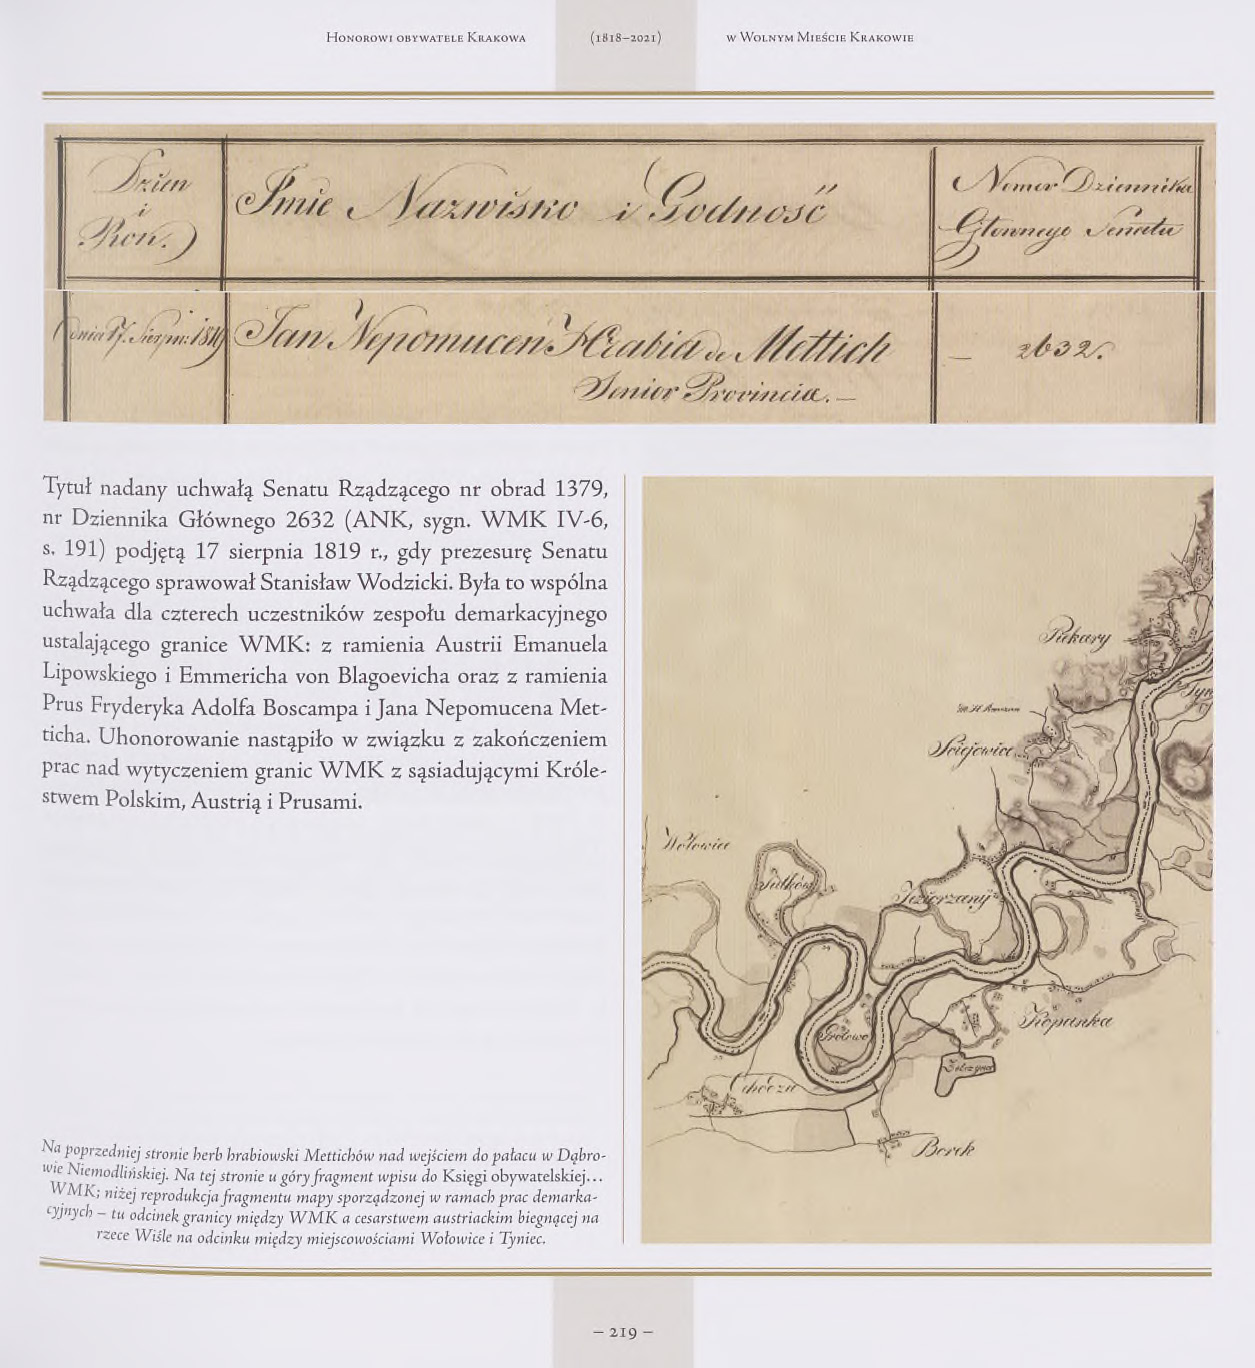 Honorowi obywatele Krakowa (1818–2021) w Wolnym Mieście Krakowie
Dzien
i
Rok.)
Imie Nazwisko i Godność
Nomer Dziennika
Głownego Senatu
dnia 17. Sierpn: 1819
Jan Nepomucen Hrabia de Mettich
Senior Provincia. —
— 2632.
Tytuł nadany uchwałą Senatu Rządzącego nr obrad 1379,
nr Dziennika Głównego 2632 (ANK, sygn. WMK IV-6,
s. 191) podjętą 17 sierpnia 1819 r., gdy prezesurę Senatu
Rządzącego sprawował Stanisław Wodzicki. Była to wspólna
uchwała dla czterech uczestników zespołu demarkacyjnego
ustalającego granice WMK: z ramienia Austrii Emanuela
Lipowskiego i Emmericha von Blagoevicha oraz z ramienia
Prus Fryderyka Adolfa Boscampa i Jana Nepomucena Met-
ticha. Uhonorowanie nastąpiło w związku z zakończeniem
prac nad wytyczeniem granic WMK z sąsiadującymi Króle-
stwem Polskim, Austrią i Prusami.
Piekary
Tyn
Sciejowice
Wołowice
Jeziorzany
Kopanka
Borek
Na poprzedniej stronie herb hrabiowski Mettichów nad wejściem do pałacu w Dąbro-
wie Niemodlińskiej. Na tej stronie u góry fragment wpisu do Księgi obywatelskiej...
WMK; niżej reprodukcja fragmentu mapy sporządzonej w ramach prac demarka-
cyjnych – tu odcinek granicy między WMK a cesarstwem austriackim biegnącej na
rzece Wiśle na odcinku między miejscowościami Wołowice i Tyniec.
– 219 –